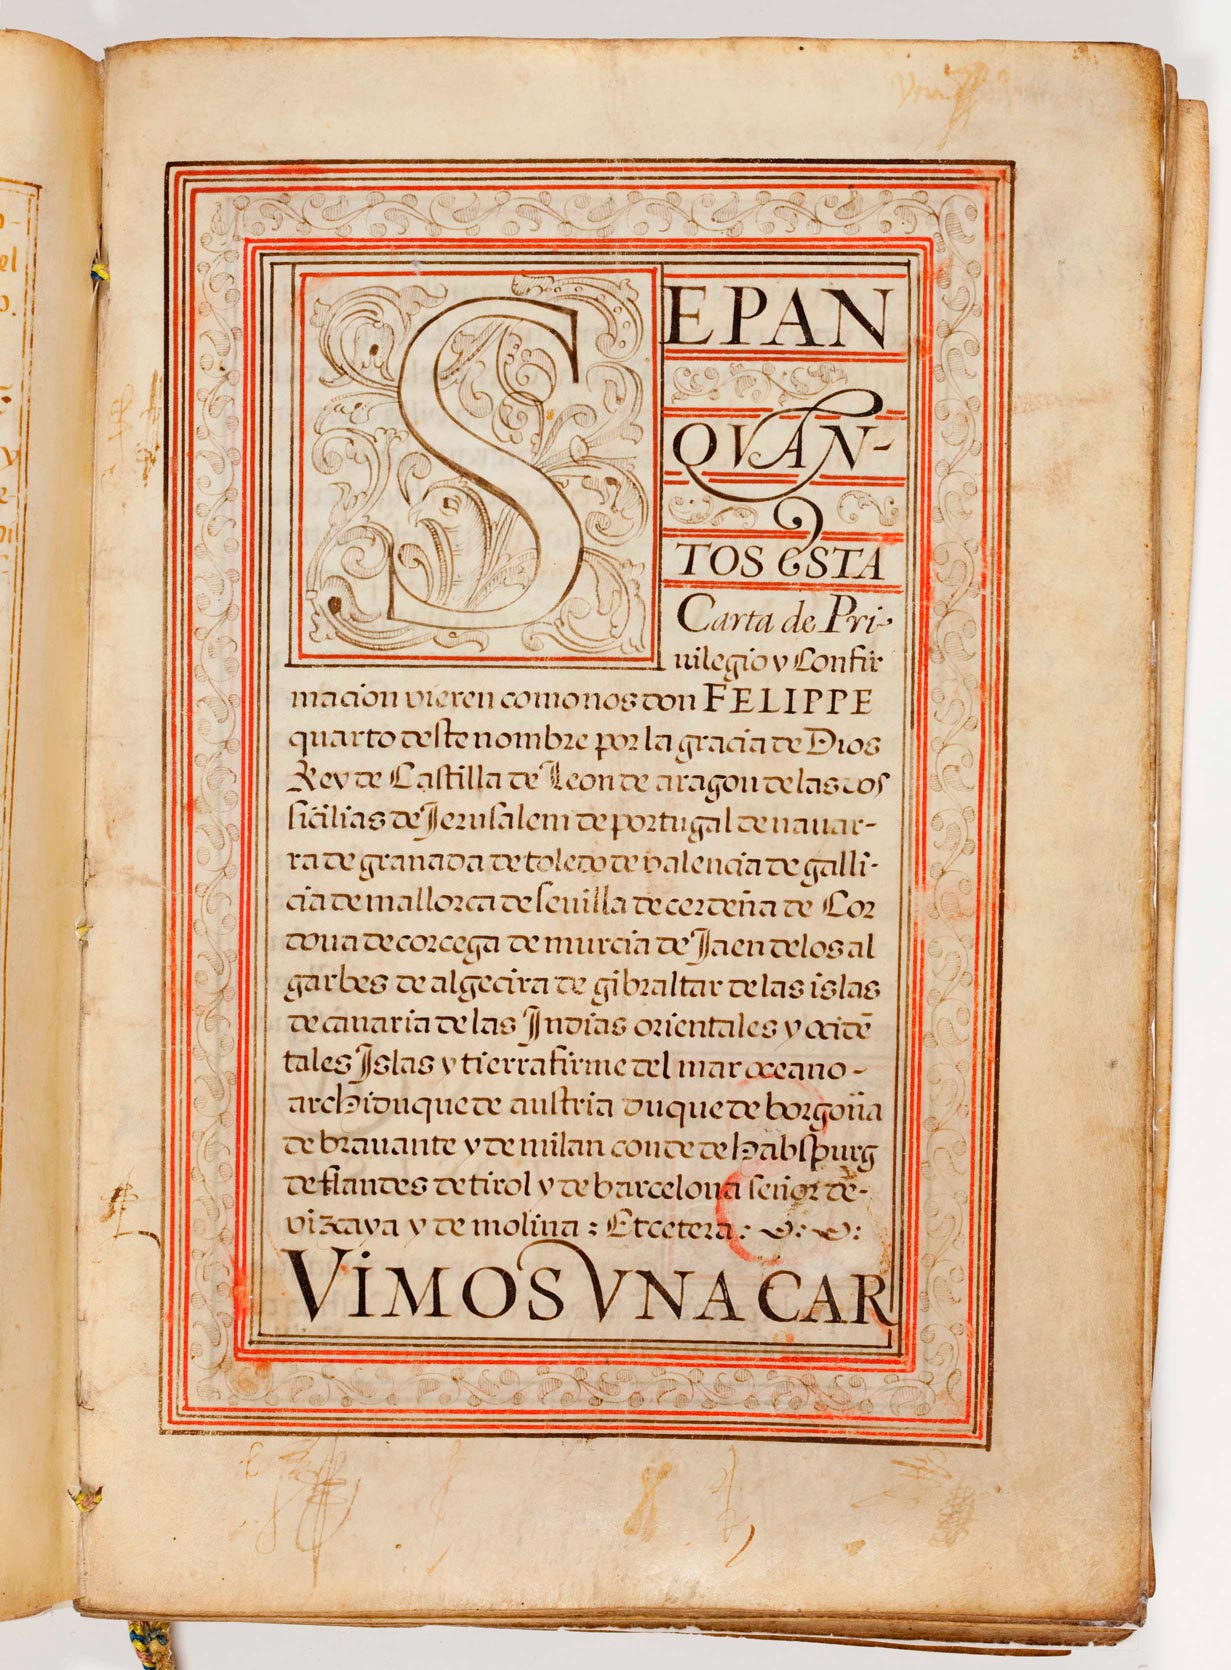 SEPAN
QVAN-
TOS ESTA
Carta de Pri-
uilegio y Confir
macion vieren como nos don FELIPPE
quarto deste nombre por la gracia de Dios
Rey de Castilla de Leon de aragon de las dos
sicilias de Jerusalem de portugal de nauar-
ra de granada de toledo de valencia de galli-
cia de mallorca de seuilla de cerdeña de Cor
doua de corcega de murcia de Jaen de los al
garbes de algecira de gibraltar de las islas
de canaria de las Indias orientales y ocidē
tales Islas y tierra firme del mar oceano -
archiduque de austria duque de borgoña
de brauante y de milan conde de habspurg
de flandes de tirol y de barcelona señor de-
vizcaya y de molina : Etcetera :
VIMOS VNA CAR